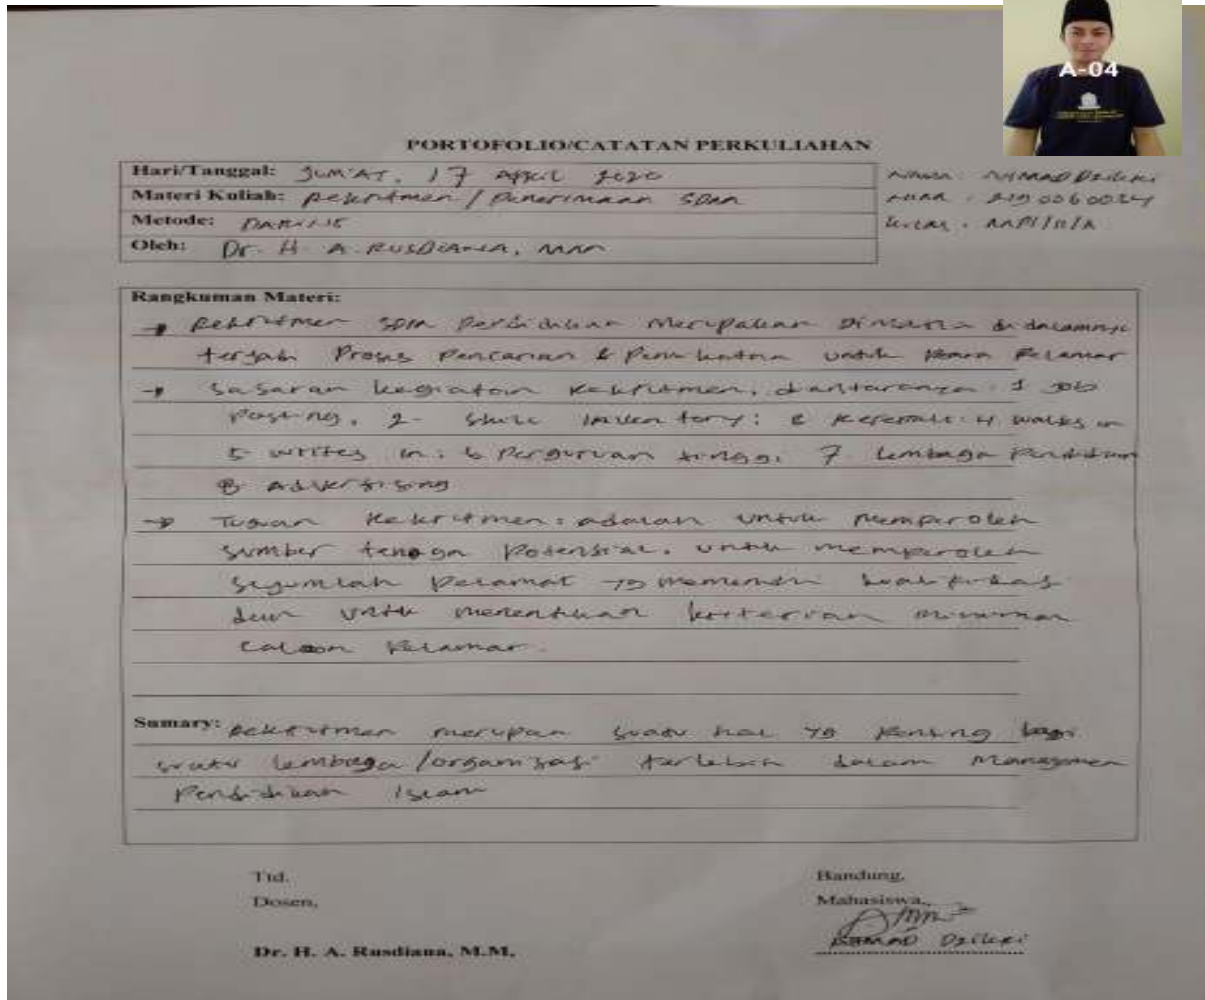 A-04
PORTOFOLIO/CATATAN PERKULIAHAN
Hari/Tanggal: JUM'AT, 17 April 2020
Materi Kuliah: Rekrutmen / Penerimaan SDM
Metode:
Oleh: Dr. H. A. RUSDIANA, MM
Nama :
Kelas :
Rangkuman Materi:
→ Rekrutmen SDM Pendidikan Merupakan Dimana di dalamnya
terjadi Proses Pencarian & untuk Para Pelamar
→ Sasaran kegiatan Rekrutmen, diantaranya. 1 Job
Posting, 2- Skill Inventory: Referral: 4 walks in
5 writes in: 6 Perguruan tinggi 7 Lembaga Pendidikan
8 Advertising
→ Tujuan Rekrutmen: adalah untuk memperoleh
sumber tenaga Potensial, untuk memperoleh
Sejumlah Pelamat yg memenuhi kualifikasi
dan untuk menentukan kriterian minimal
Calon Pelamar.
Sumary: Rekrutmen merupan suatu hal yg Penting bagi
suatu Lembaga / organisasi terlebih dalam Manajemen
Pendidikan Islam
Ttd.
Dosen,
Dr. H. A. Rusdiana, M.M.
Bandung,
Mahasiswa,
Dzikri